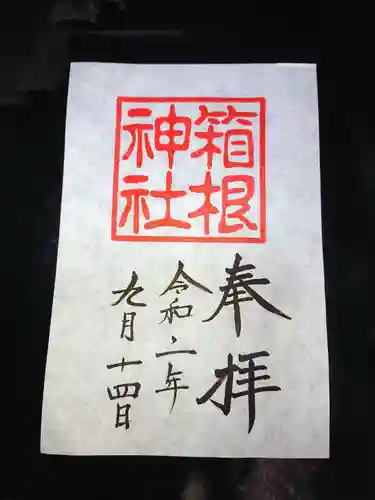 箱根
神社
奉拝
令和二年
九月十四日